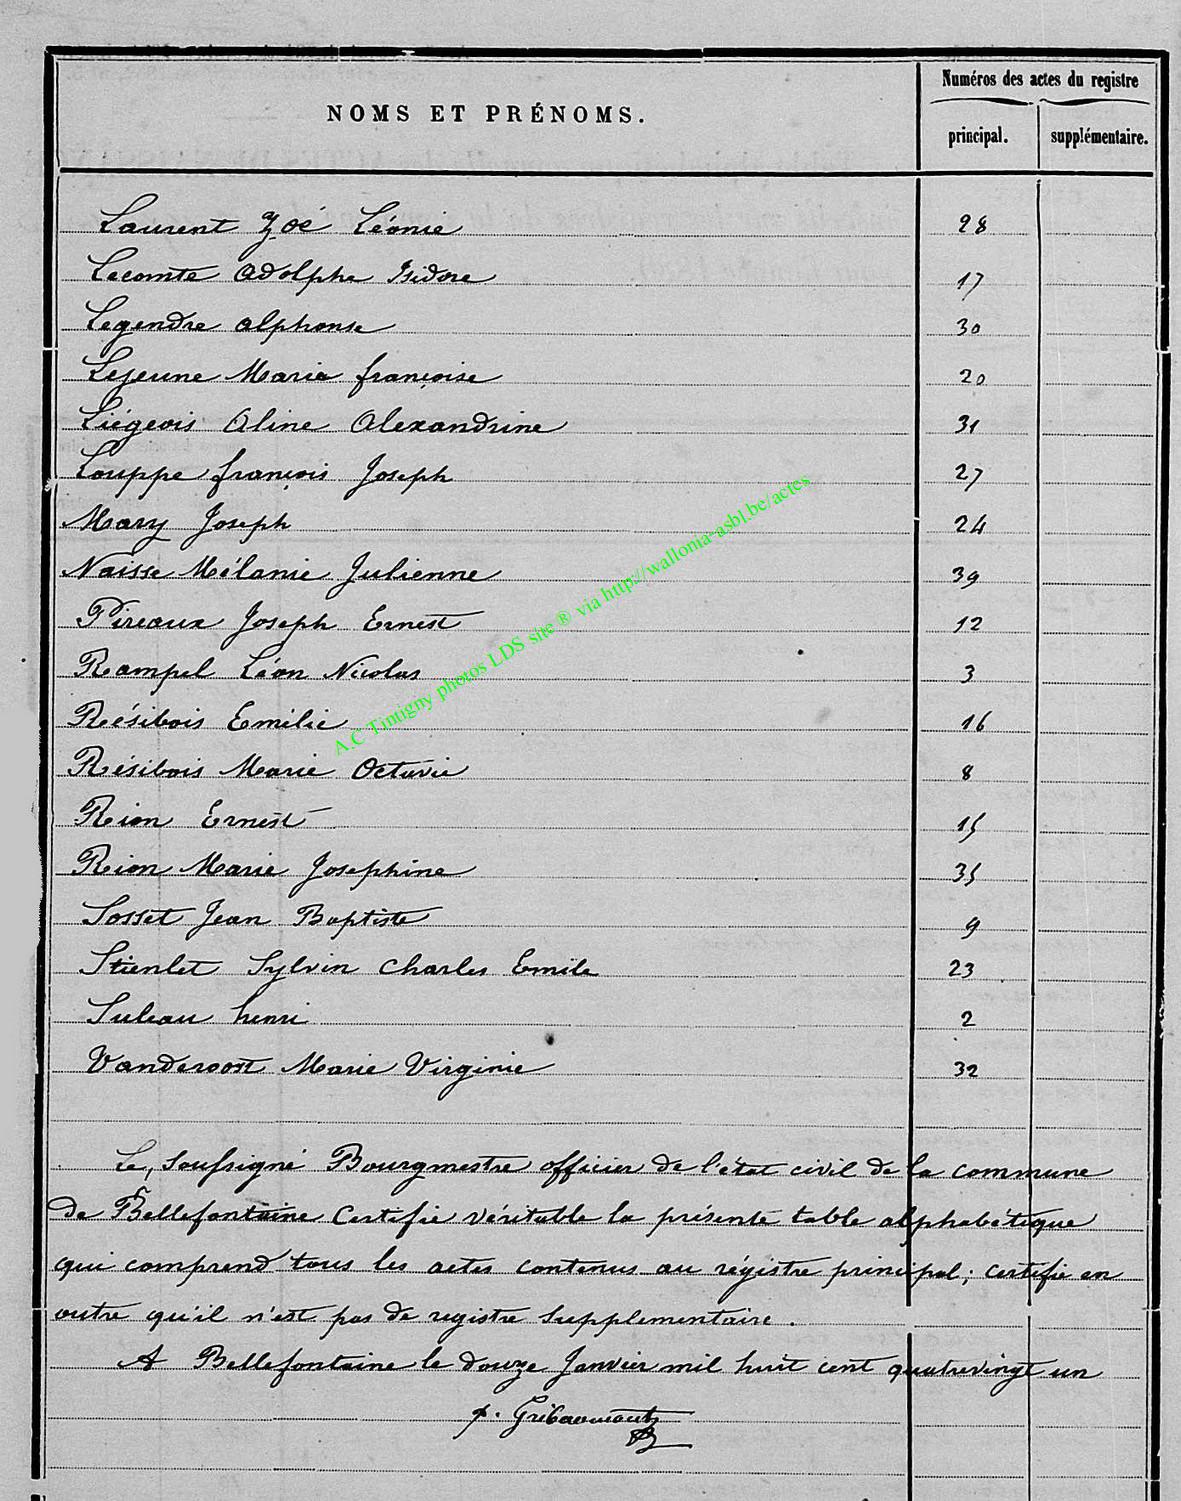 Numéros des actes du registre
NOMS ET PRÉNOMS.
principal. supplémentaire.
Laurent Zoé Léonie 28
Lecomte Adolphe Isidore 17
Legendre Alphonse 30
Lejeune Marie françoise 20
Liégeois Aline Alexandrine 31
Louppe françois Joseph 27
Mary Joseph 24
Naisse Mélanie Julienne 39
Pireaux Joseph Ernest 12
Rampel Léon Nicolas 3
Résibois Emilie 16
Résibois Marie Octavie 8
Rion Ernest 15
Rion Marie Josephine 35
Sosset Jean Baptiste 9
Stienlet Sylvin Charles Emile 23
Suleau henri 2
Vanderoost Marie Virginie 32
A.C Tintigny photos LDS site ® via http://wallonia-asbl.be/actes
Le, soussigné Bourgmestre officier de l'état civil de la commune
de Bellefontaine Certifie véritable la présente table alphabétique
qui comprend tous les actes contenus au régistre principal; certifie en
outre qu'il n'est pas de registre supplementaire.
A Bellefontaine le douze Janvier mil huit cent quatrevingt un